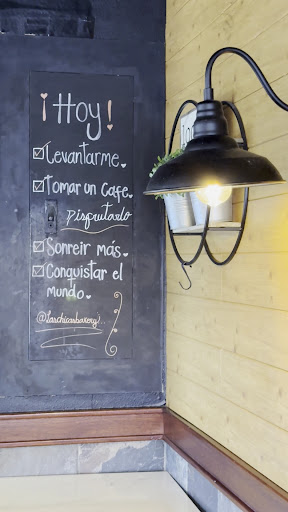 ¡Hoy!
☑ Levantarme.
☑ Tomar un Cafe.
Disfrutarlo
☑ Sonreir más.
☑ Conquistar el
mundo.